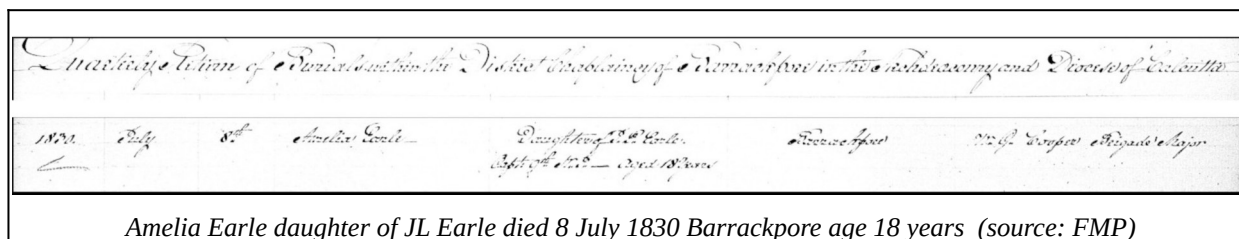 Quarterly Return of Burials within the District Chaplaincy of Barrackpore in the Archdeaconry and Diocese of Calcutta
1830. July 8th Amelia Earle Daughter of Earle Barrackpore Wm G. Cooper Brigade Major
Capt 9th Aged 18 Years
Amelia Earle daughter of JL Earle died 8 July 1830 Barrackpore age 18 years (source: FMP)